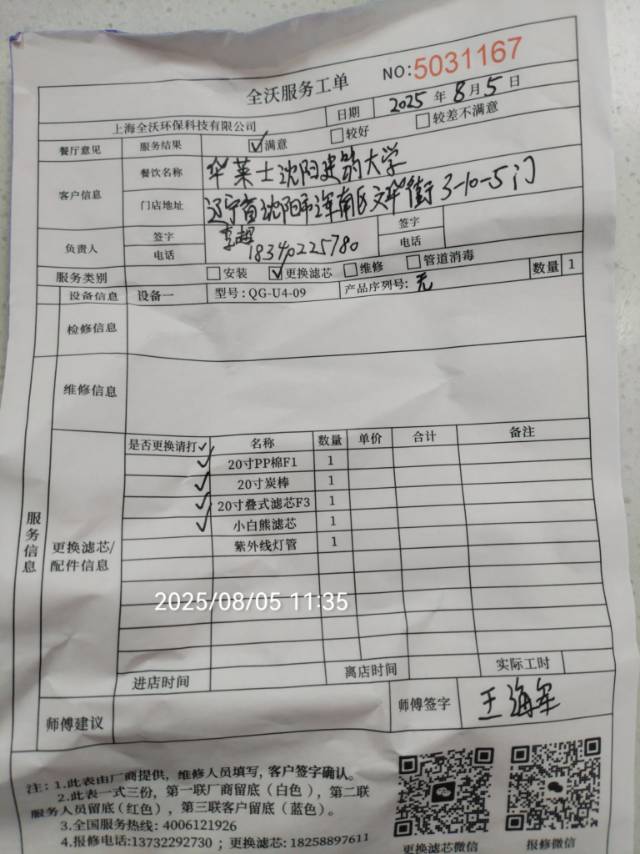 全沃服务工单
NO:5031167
上海全沃环保科技有限公司 日期 2025 年 8 月 5 日
餐厅意见 服务结果 ☑满意 □较好 □较差不满意
客户信息 餐饮名称 华莱士沈阳建筑大学
门店地址 辽宁省沈阳市浑南区文华街 3-10-5门
负责人 签字 李超 签字
电话 18340225780 电话
服务类别 □安装 ☑更换滤芯 □维修 □管道消毒
设备信息 设备一 型号:QG-U4-09 产品序列号: 无 数量 1
检修信息
维修信息
服务信息
更换滤芯/配件信息
是否更换请打✓ 名称 数量 单价 合计 备注
✓ 20寸PP棉F1 1
✓ 20寸炭棒 1
✓ 20寸叠式滤芯F3 1
✓ 小白熊滤芯 1
紫外线灯管 1
2025/08/05 11:35
进店时间 离店时间 实际工时
师傅建议 师傅签字 王海军
注: 1.此表由厂商提供, 维修人员填写, 客户签字确认。
2.此表一式三份, 第一联厂商留底(白色), 第二联
服务人员留底(红色), 第三联客户留底(蓝色)。
3.全国服务热线: 4006121926
4.报修电话:13732292730 ; 更换滤芯: 18258897611
更换滤芯微信 报修微信